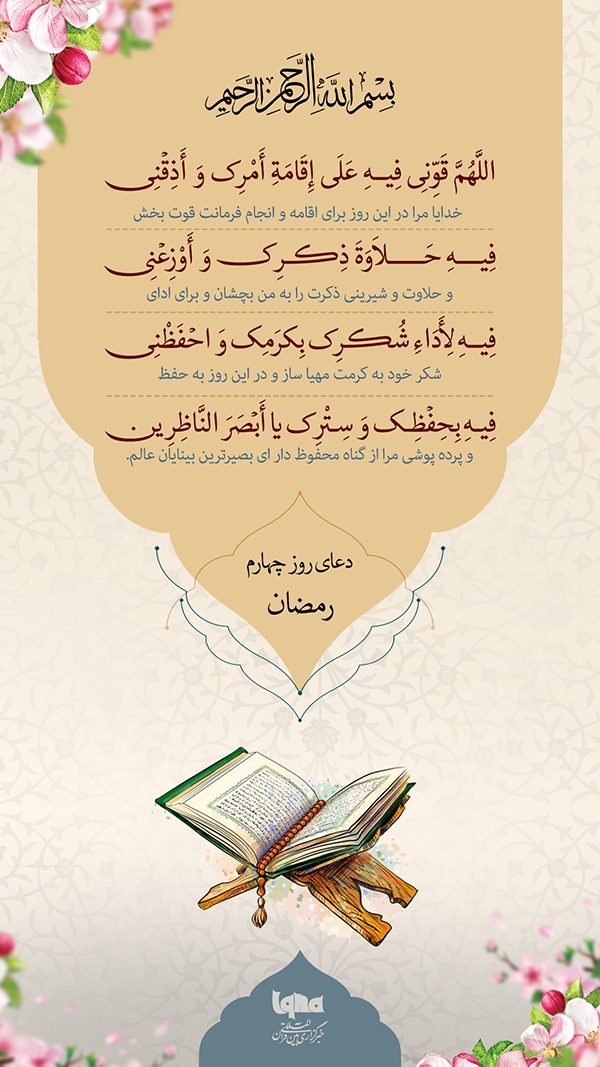 بِسْمِ اللهِ الرَّحْمنِ الرَّحِيمِ
اللَّهُمَّ قَوِّنِی فِیهِ عَلَی إِقَامَةِ أَمْرِک وَ أَذِقْنِی
خدایا مرا در این روز برای اقامه و انجام فرمانت قوت بخش
فِیهِ حَلاَوَةَ ذِکرِک وَ أَوْزِعْنِی
و حلاوت و شیرینی ذکرت را به من بچشان و برای ادای
فِیهِ لِأَدَاءِ شُکرِک بِکرَمِک وَ احْفَظْنِی
شکر خود به کرمت مهیا ساز و در این روز به حفظ
فِیهِ بِحِفْظِک وَ سِتْرِک یا أَبْصَرَ النَّاظِرِین
و پرده پوشی مرا از گناه محفوظ دار ای بصیرترین بینایان عالم.
دعای روز چهارم
رمضان
iqna
خبرگزاری بین المللی قرآن